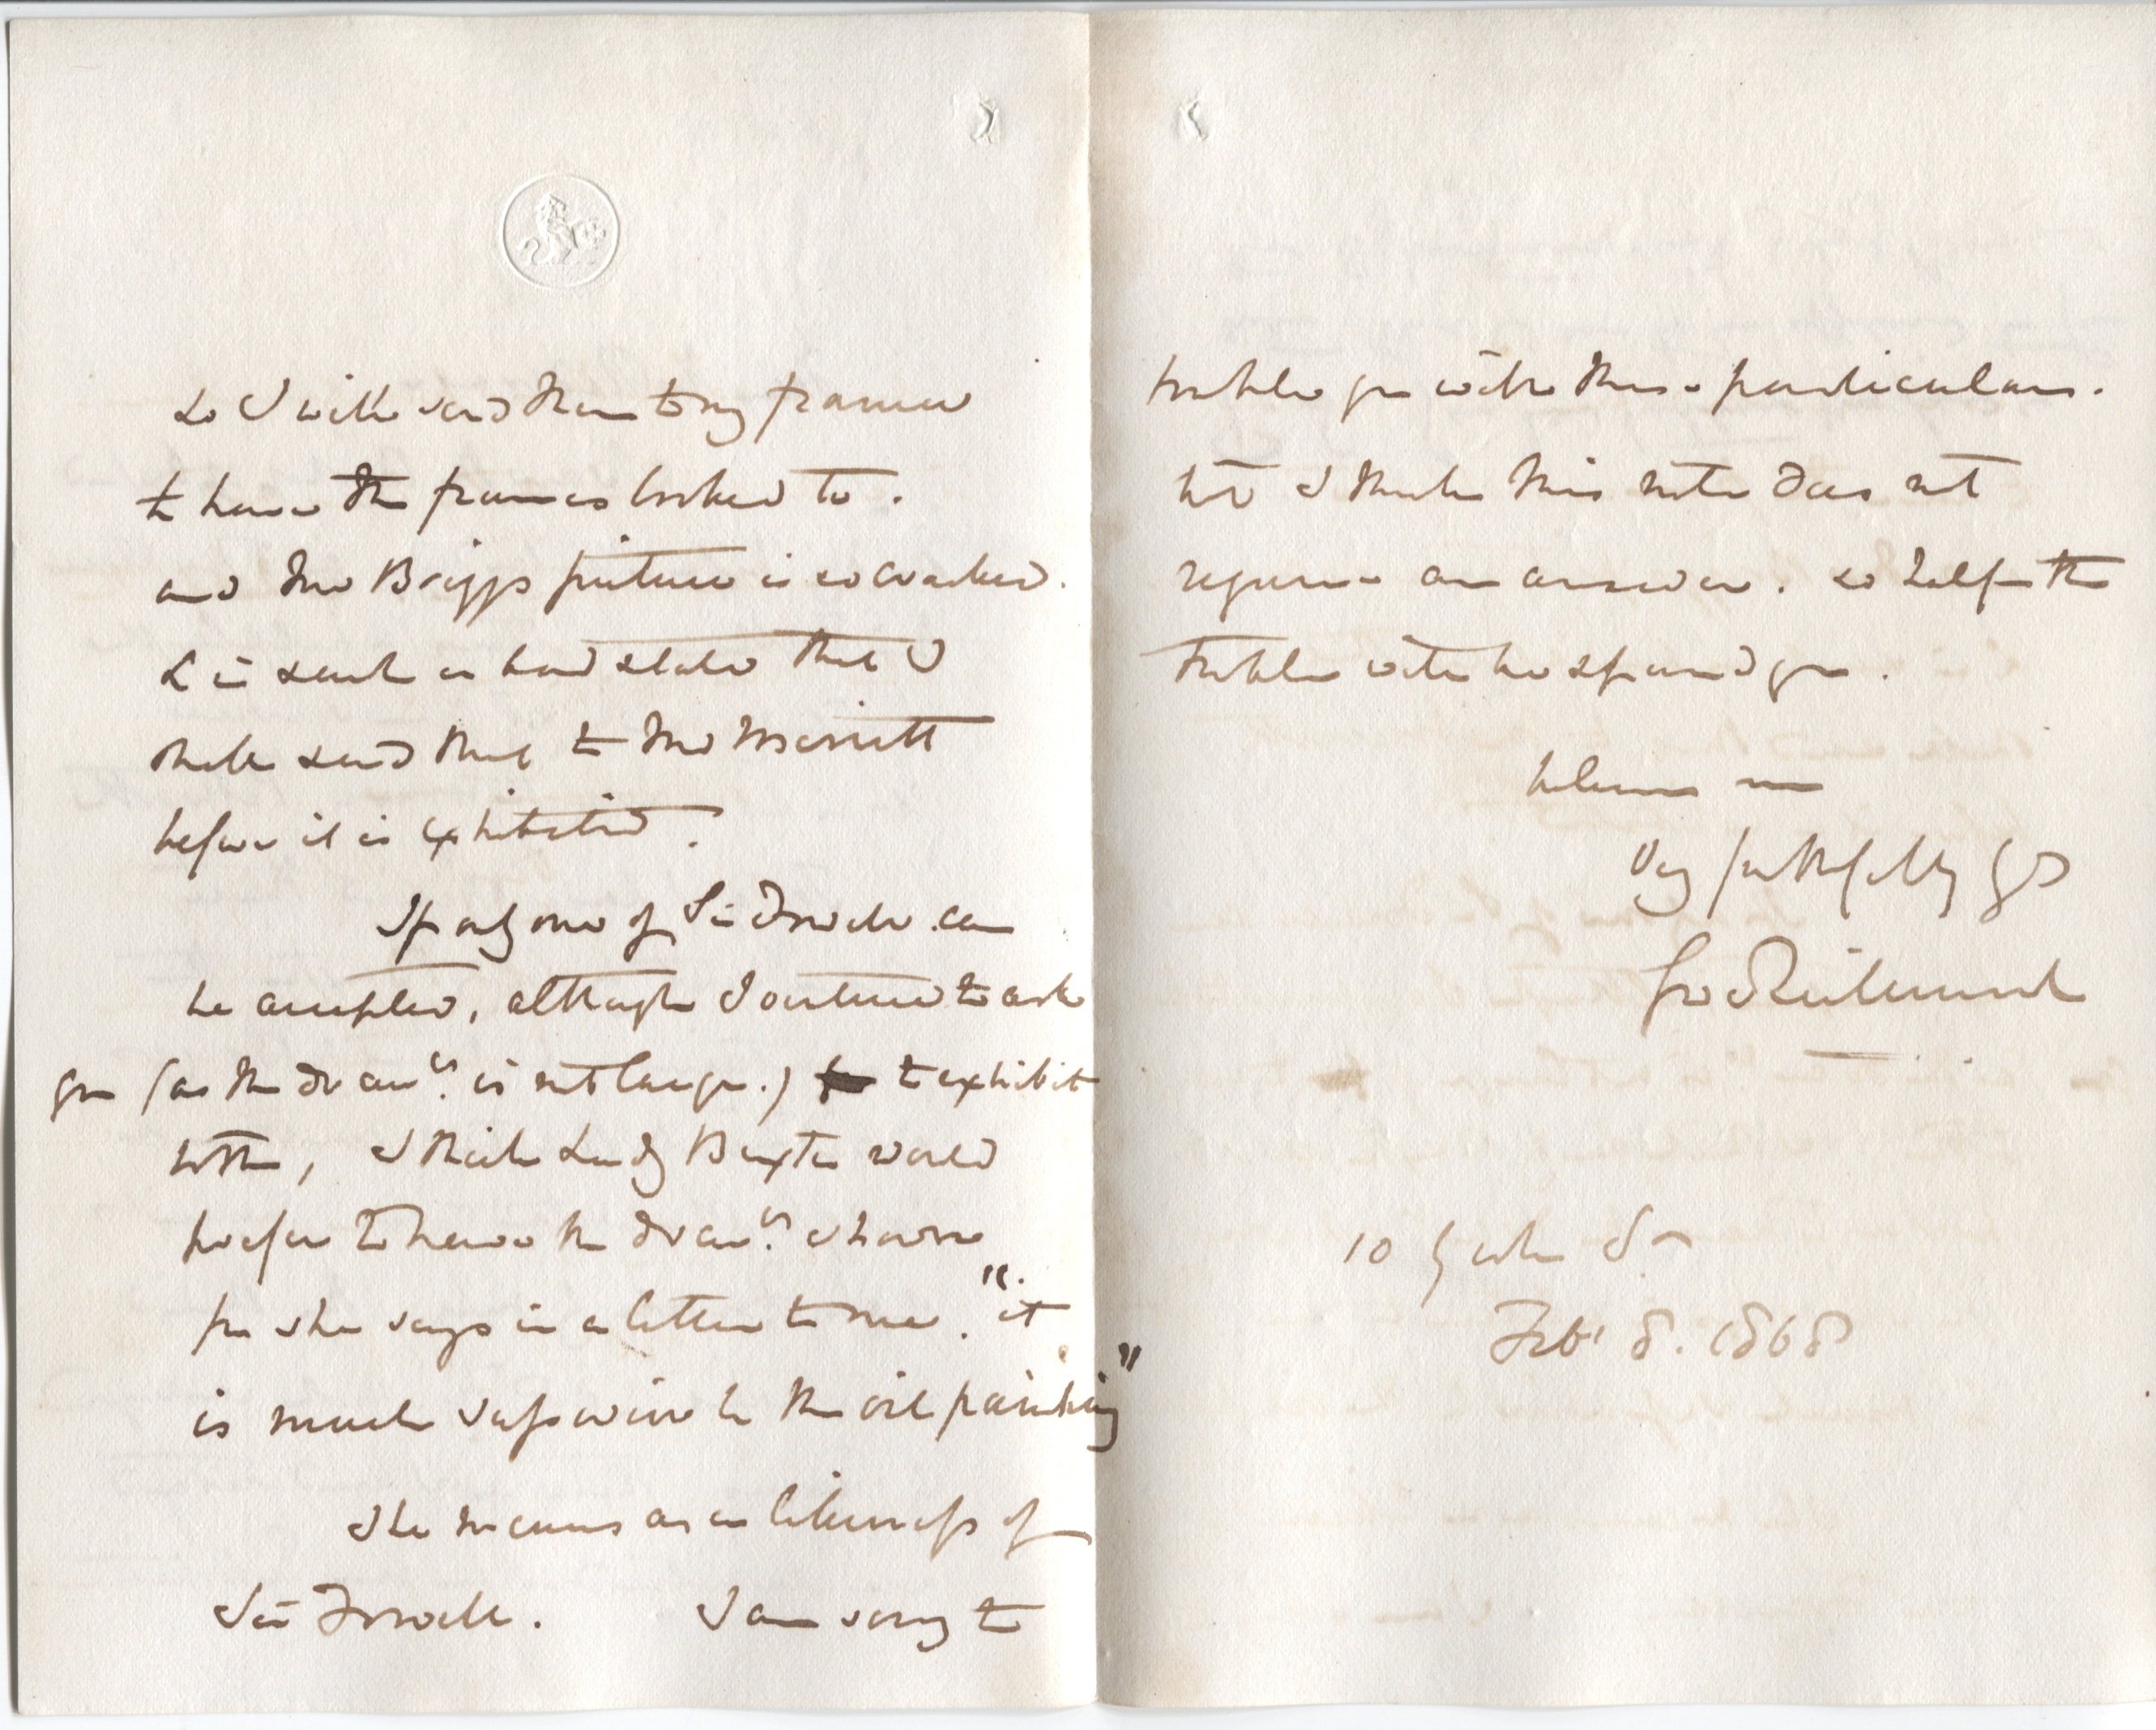 So I will send them to my framer
to have the frames looked to.
and the Briggs picture is so cracked.
& in such a bad state that I
shall send that to Mr Merritt
before it is exhibited.
If only one of Sir Fowell can
be accepted, although I venture to ask
you (as the draw.g is not large.) to exhibit
both, I think Lady Buxton would
prefer to have the draw.g shown
for she says in a letter to me. "it
is much superior to the oil painting"
She means as a likeness of
Sir Fowell. I am sorry to
trouble you with these particulars.
but I think this note does not
require an answer. so half the
trouble will be spared you.
believe me
Very faithfully Yrs
Geo Richmond
10 York St
Feb. 8. 1868